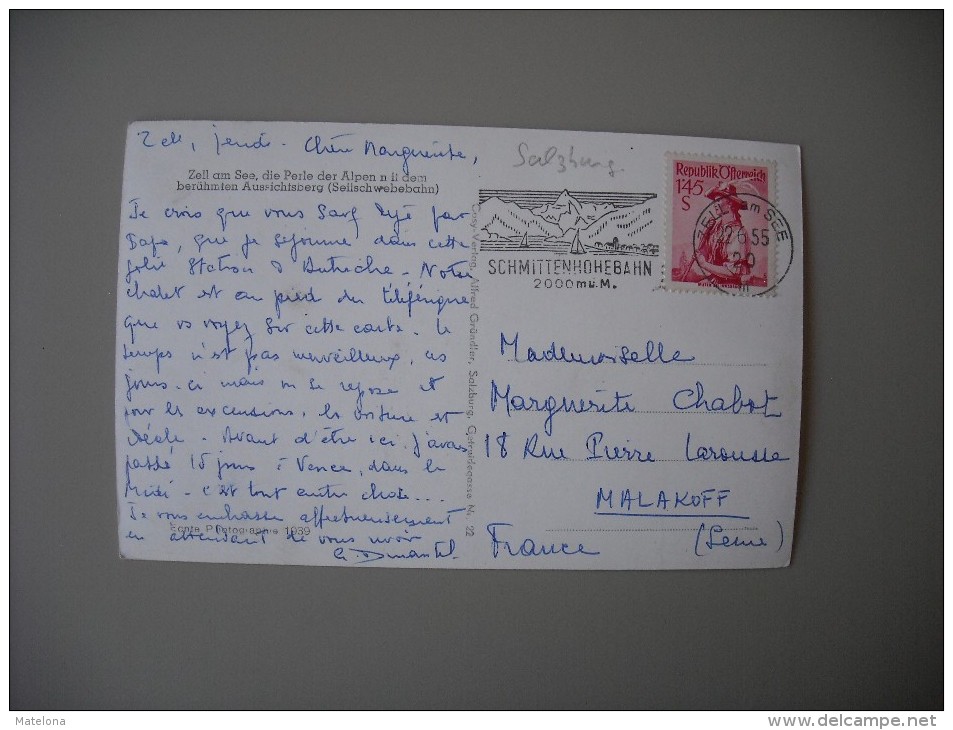 Zell, jeudi - Chère Marguerite,
Zell am See, die Perle der Alpen mit dem
berühmten Aussichtsberg (Seilschwebebahn)
Je crois que vous savez déjà par
Papa, que je séjourne dans cette
jolie station d'Autriche - Notre
chalet est au pied du téléférique
que vs voyez sur cette carte. Le
temps n'est pas merveilleux, ces
jours-ci mais on se repose et
pour les excursions, la voiture est
idéale - Avant d'être ici j'avais
passé 15 jours à Vence, dans le
Midi - c'est tout autre chose...
Je vous embrasse affectueusement
en attendant de vous voir
Echte Photographie 1939
Cosy-Verlag, Alfred Gründler, Salzburg, Getreidegasse Nr. 22
Salzburg
SCHMITTENHÖHEBAHN
2000 m ü. M.
Republik Österreich
1'45
S
ZELL am SEE
22.6.55
20
Mademoiselle
Marguerite Chabot
18 Rue Pierre Larousse
MALAKOFF
(Seine)
France
Matelona
delcampe.net